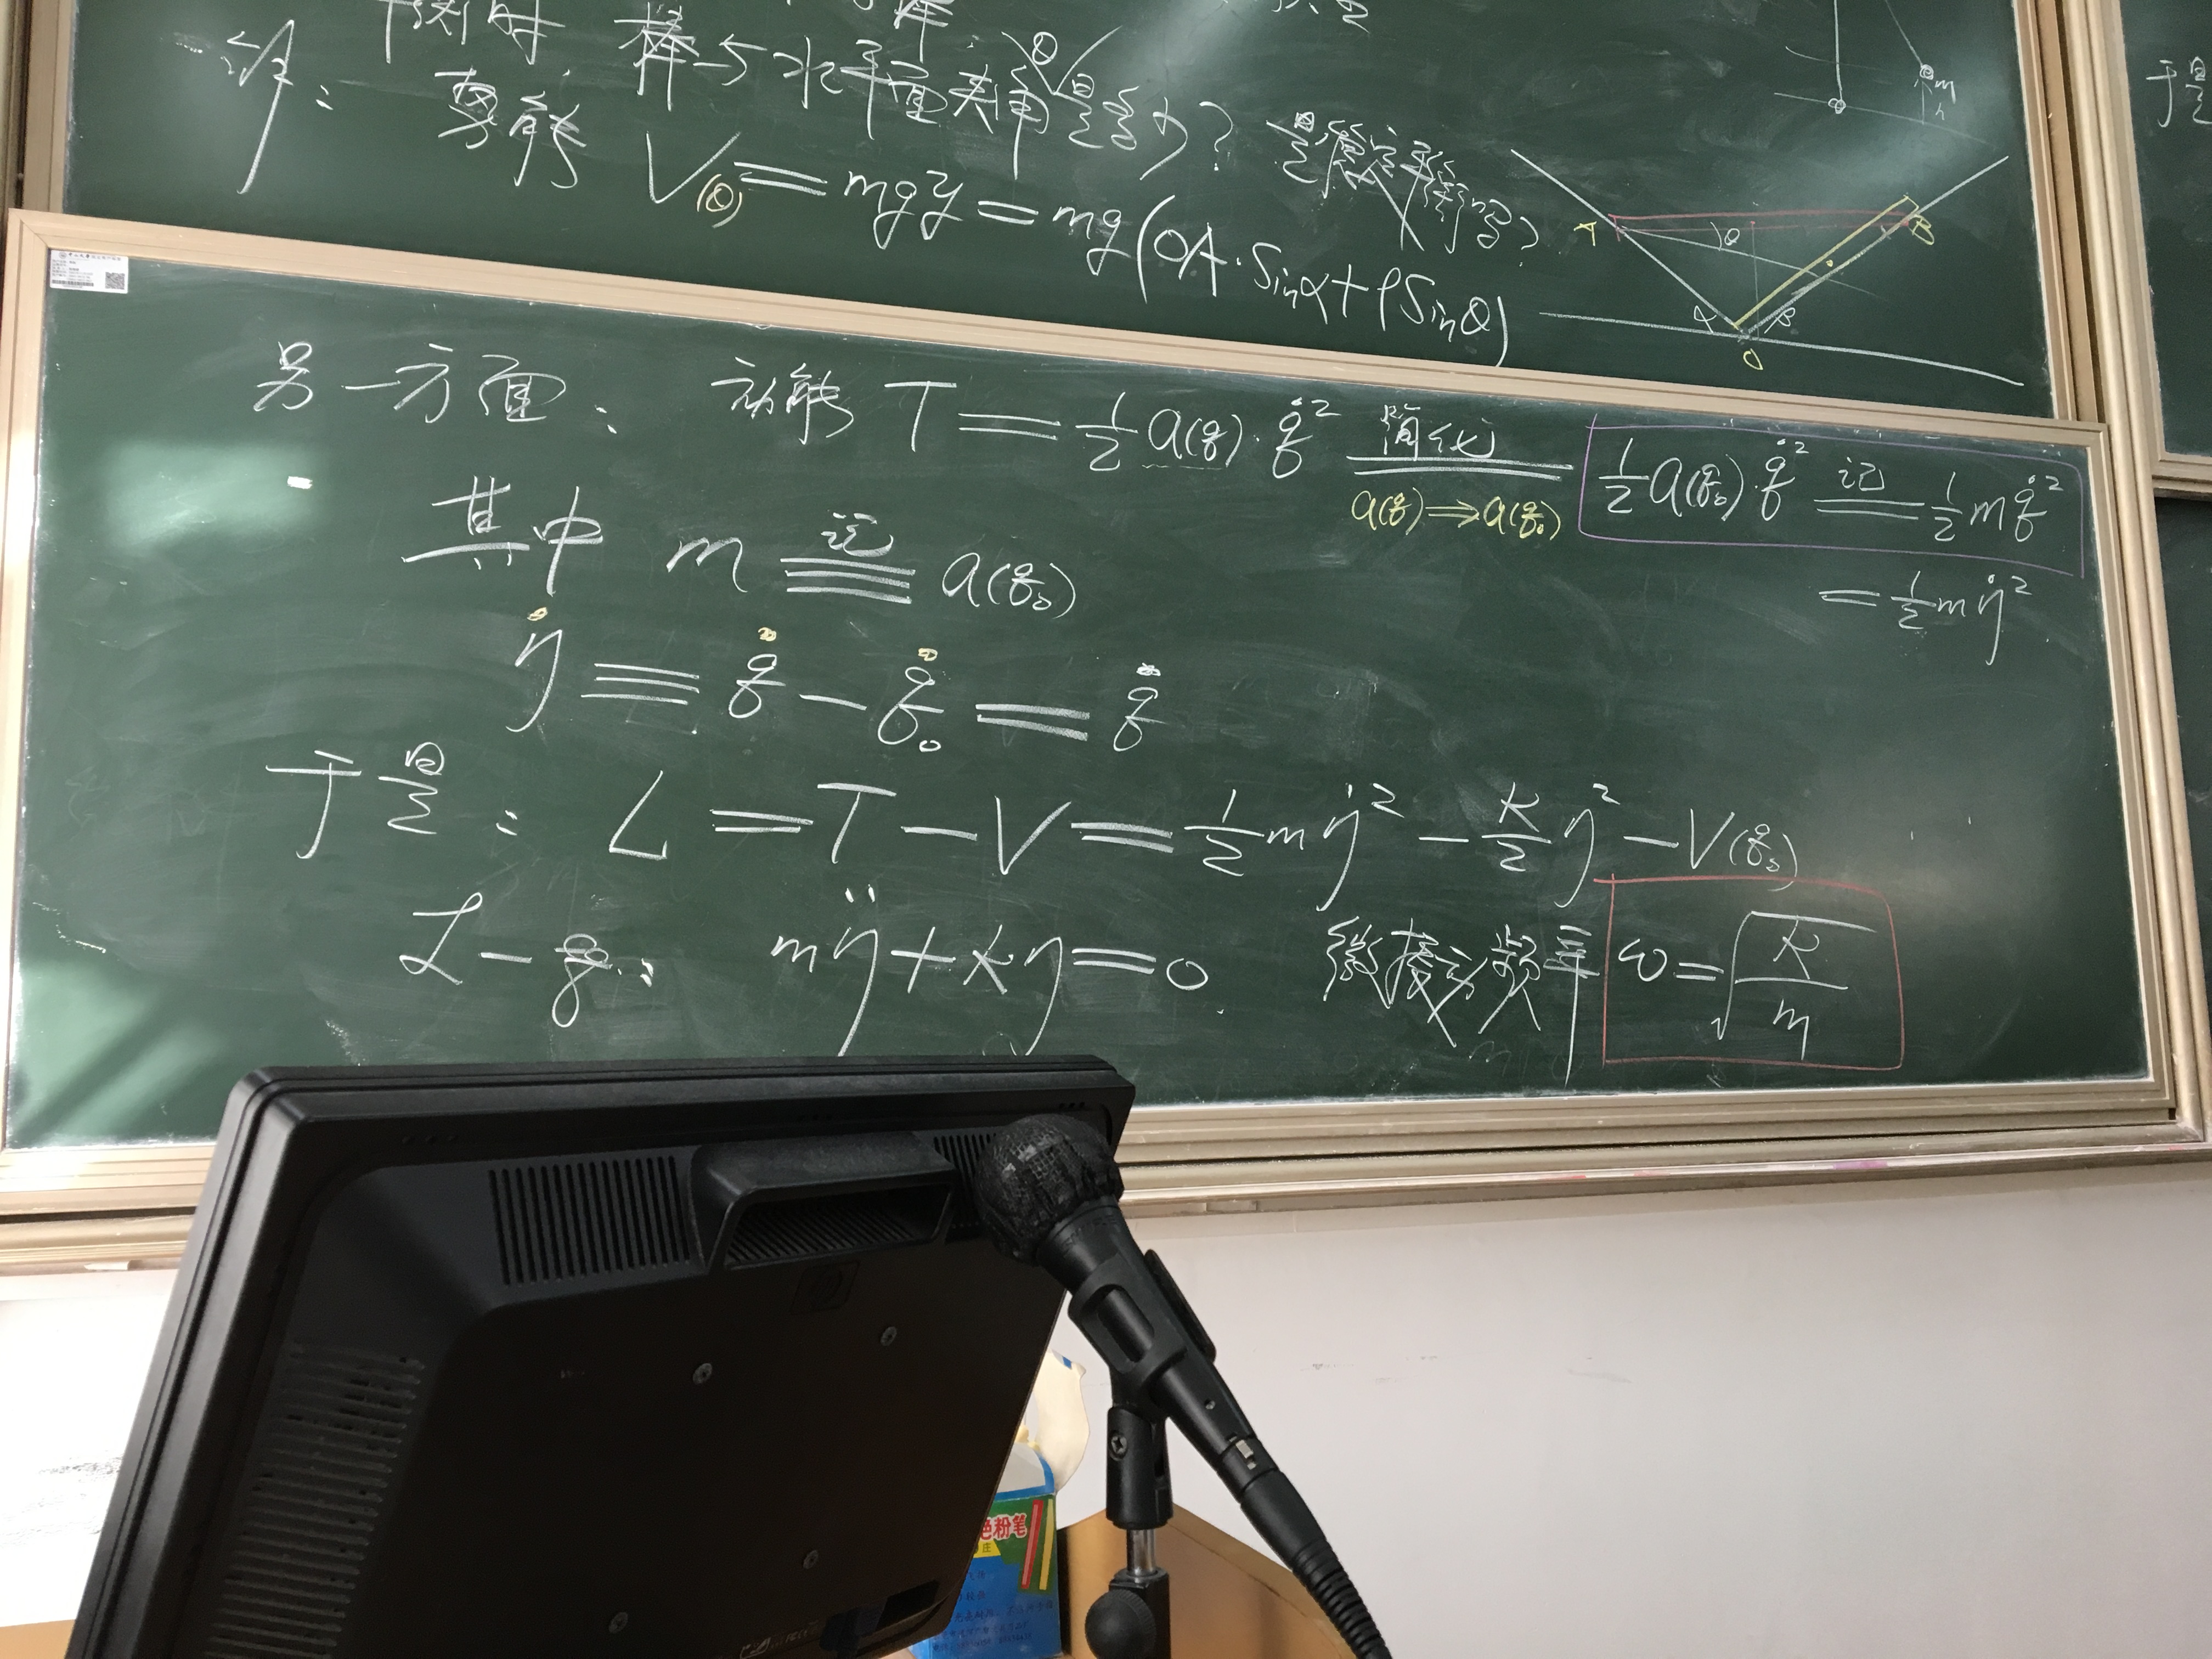 棒与水平面夹角θ是多少? 是稳定平衡吗?
解: 势能 V(θ) = mgy = mg(OA·Sinα+ρSinθ)
A θ B
α β
O
m
h
于是
另一方面: 动能 T = 1/2 a(q)·q̇² 简化 = 1/2 a(q₀)·q̇² 记 = 1/2 m q̇²
a(q) ⇒ a(q₀)
= 1/2 m η̇²
其中 m 记≡ a(q₀)
η̇ ≡ q̇ − q̇₀ = q̇
于是: L = T − V = 1/2 m η̇² − K/2 η² − V(q₀)
L-g: mη̈ + Kη = 0 微振动频率 ω = √(K/m)
色粉笔